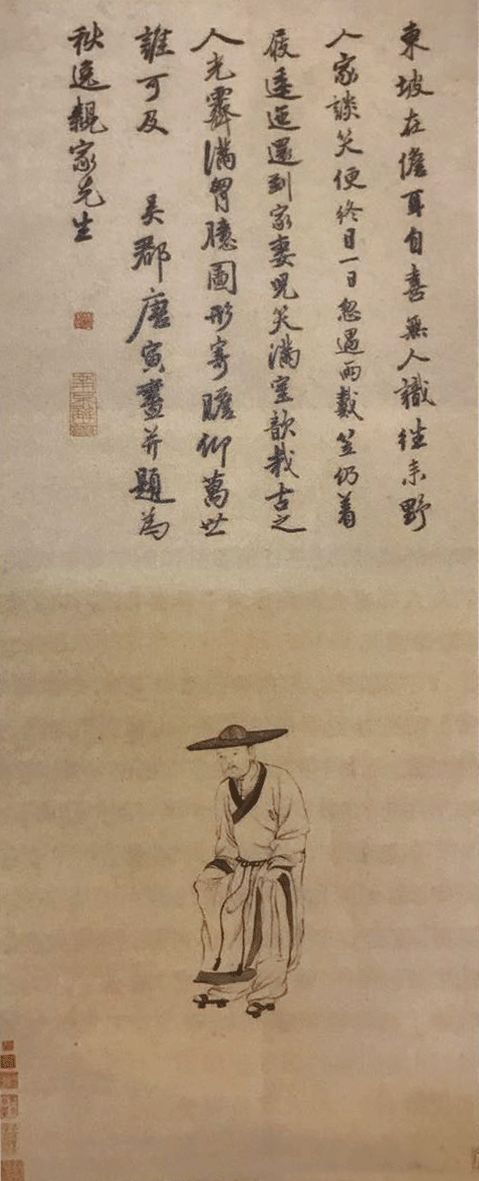 東坡在儋耳自喜無人識往来野
人家談笑便終日一日忽遇雨戴笠仍着
屐逶迤還到家妻児笑滿室歆哉古之
人光霽滿胷臆圖形寄瞻仰萬世
誰可及 吳郡唐寅畫并題為
秋逸親家先生